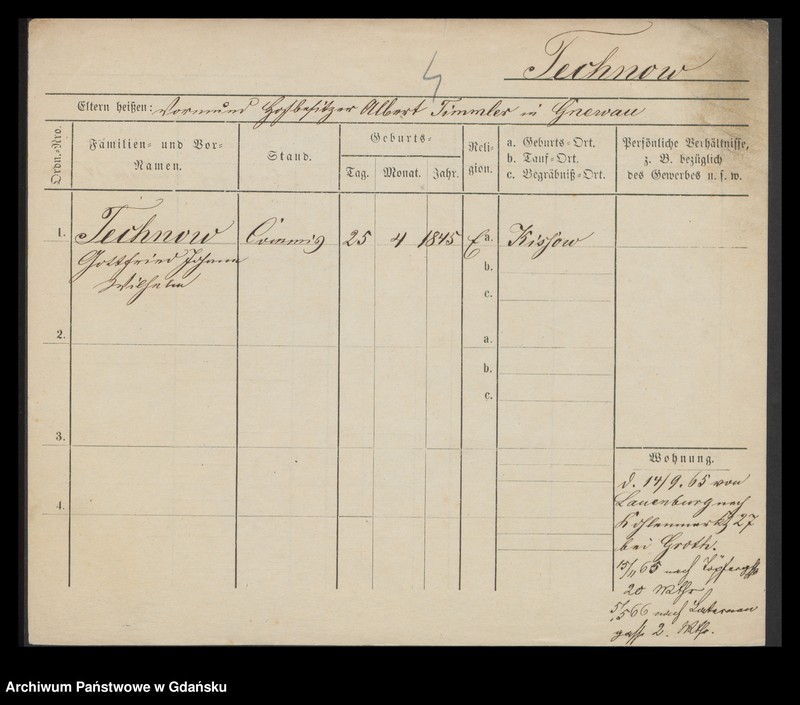 Technow
Eltern heißen: Vormund Hofbesitzer Albert Timmler in Gnewau
Ordn.-Nro.
Familien- und Vor-
Namen.
Stand.
Geburts-
Tag. Monat. Jahr.
Reli-
gion.
a. Geburts-Ort.
b. Tauf-Ort.
c. Begräbniß-Ort.
Persönliche Verhältnisse,
z. B. bezüglich
des Gewerbes u. s. w.
1. Technow Commis 25 4 1845 E a. Kissow
Gottfried Johann
Wilhelm
b.
c.
2.
a.
b.
c.
3.
4.
Wohnung.
d. 14/9. 65 von
Lauenburg nach
Kohlenmarkt 27
bei Groth.
15/11 65 nach Töpferg
20
5/5 66 nach Laternen
gasse 2.
Archiwum Państwowe w Gdańsku